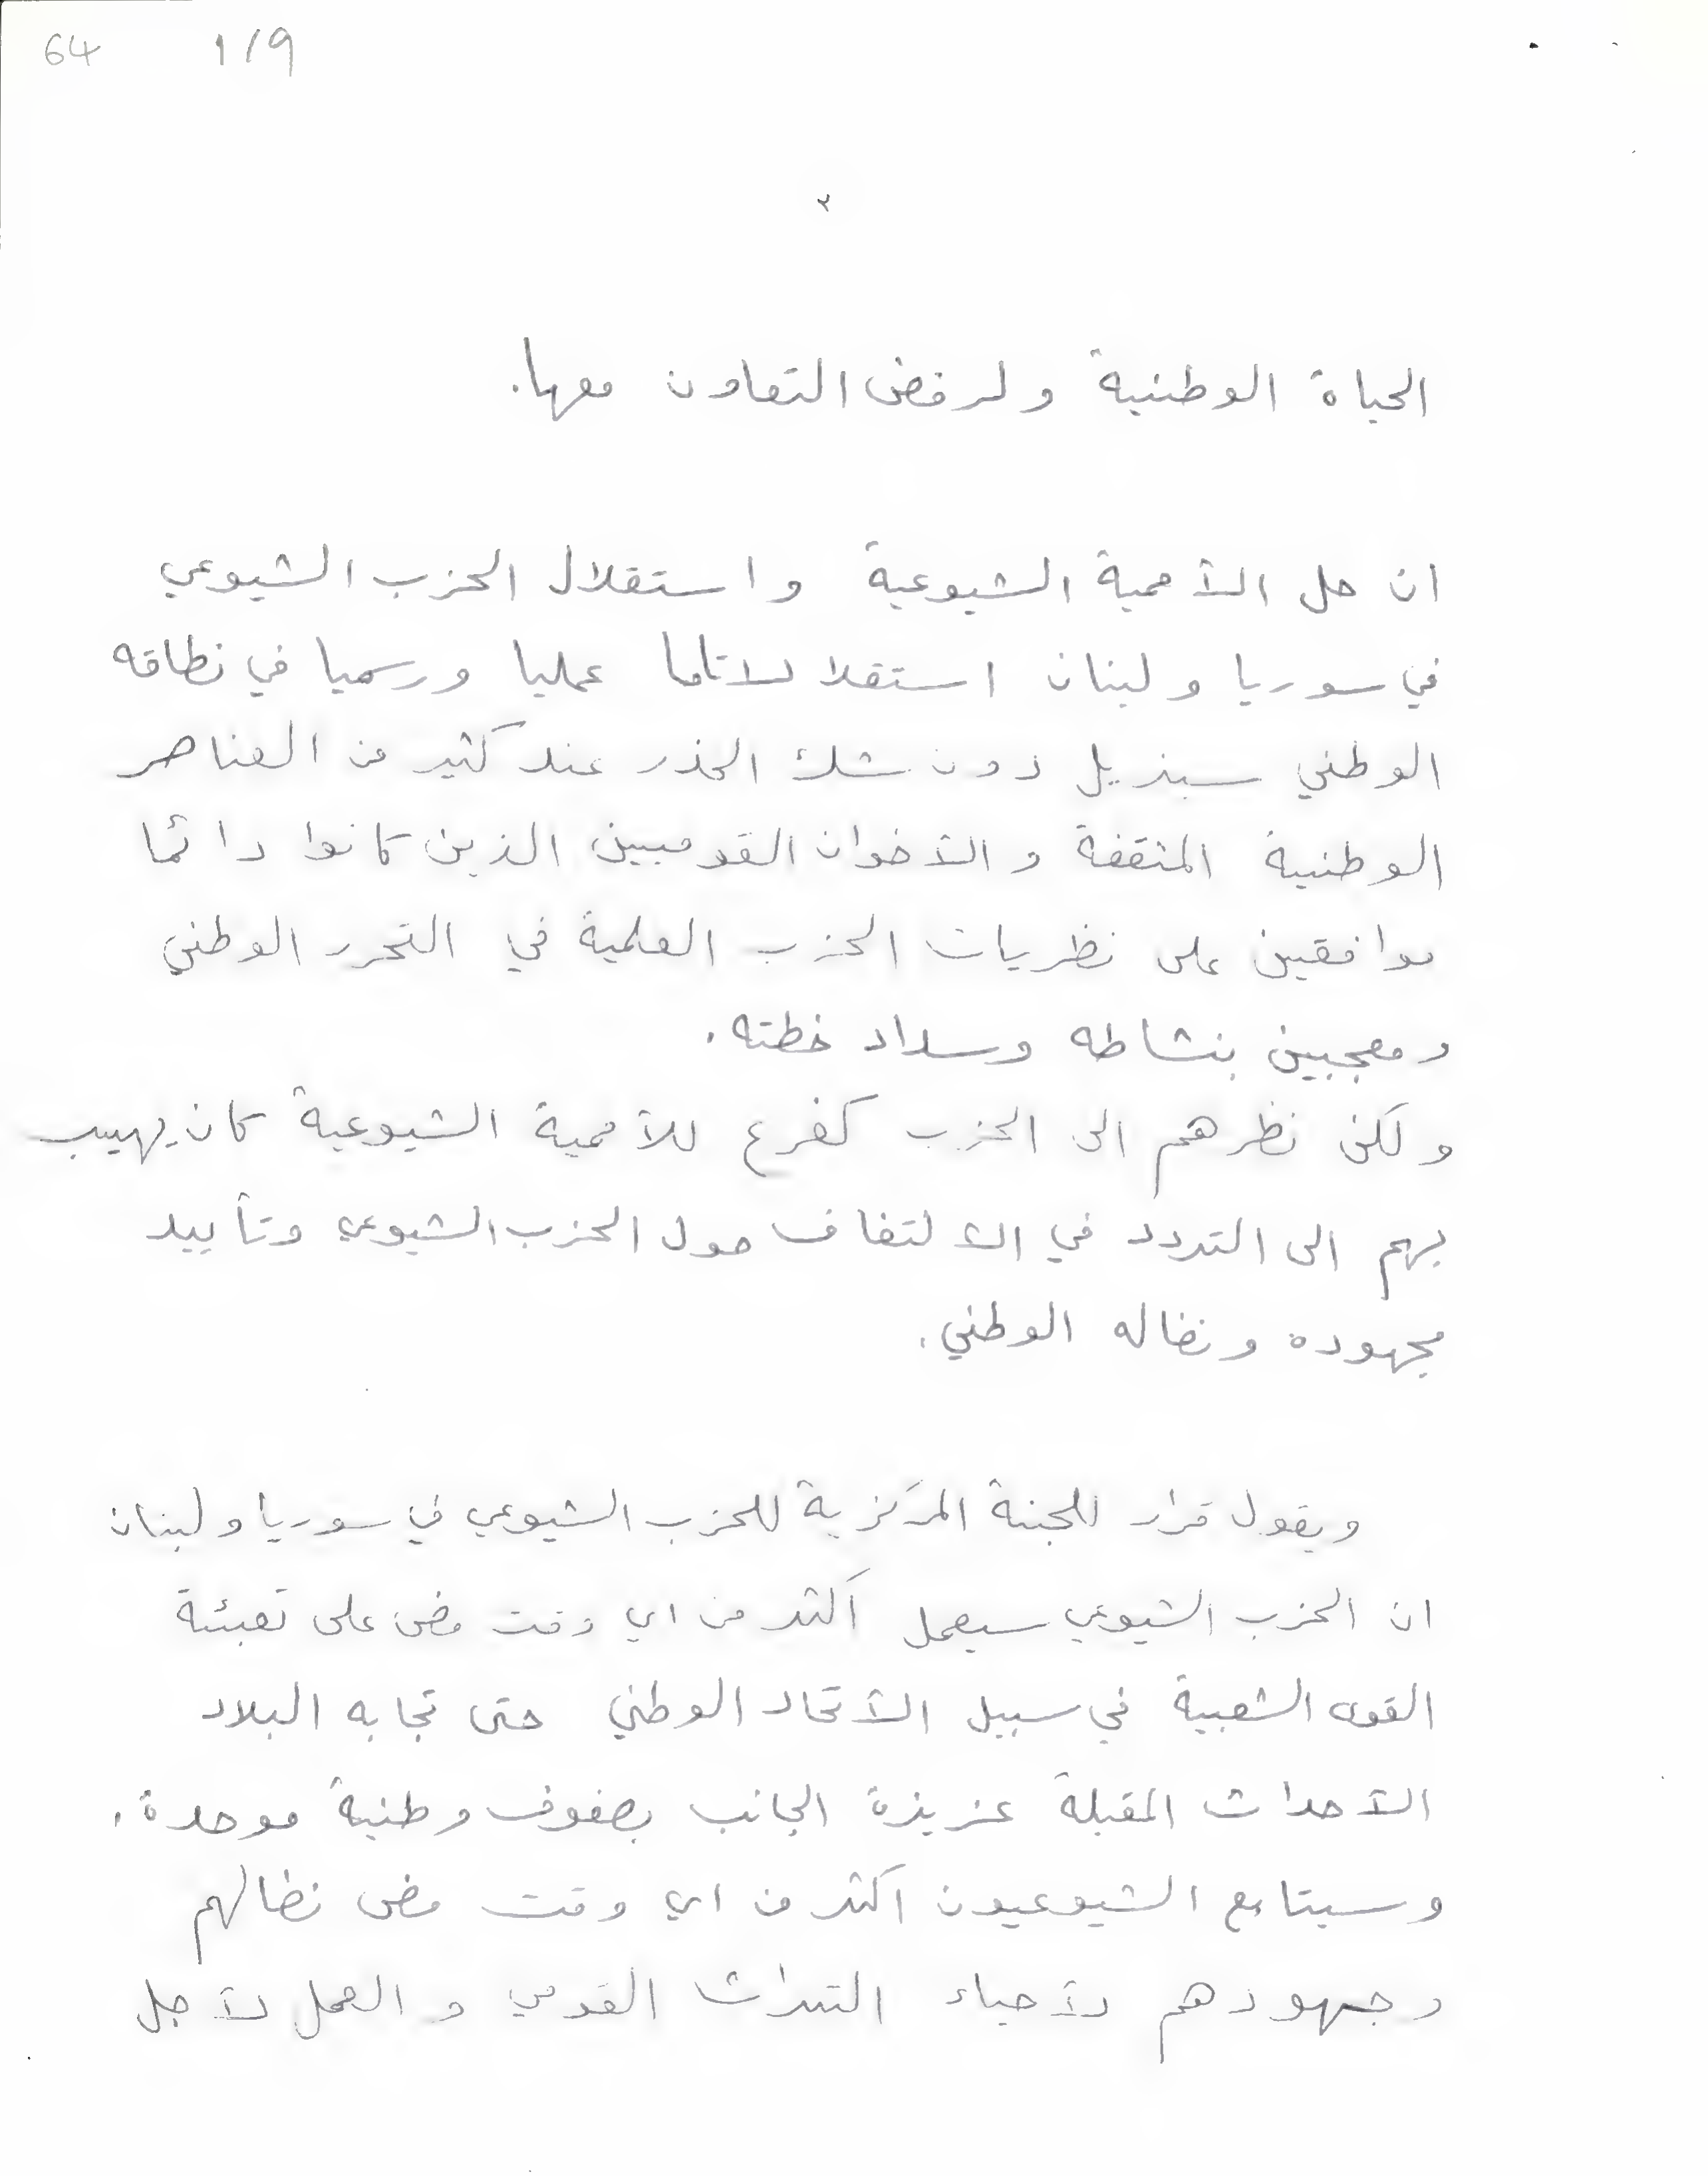 64 1/9
٢
الحياة الوطنية ولرفض التعاون معها.
ان حل الأممية الشيوعية واستقلال الحزب الشيوعي
في سوريا ولبنان استقلالا تاما عمليا ورسميا في نطاقه
الوطني سيزيل دون شك الحذر عند كثير من العناصر
الوطنية المثقفة والأخوان القوميين الذين كانوا دائما
موافقين على نظريات الحزب العلمية في التحرر الوطني
ومعجبين بنشاطه وسداد خطته.
ولكن نظرهم الى الحزب كفرع للأممية الشيوعية كان يهيب
بهم الى التردد في الألتفاف حول الحزب الشيوعي وتأييد
مجهوده ونضاله الوطني.
ويقول قرار للجنة المركزية للحزب الشيوعي في سوريا ولبنان
ان الحزب الشيوعي سيعمل أكثر من اي وقت مضى على تعبئة
القوى الشعبية في سبيل الأتحاد الوطني حتى تجابه البلاد
الأحداث المقبلة عزيزة الجانب بصفوف وطنية موحدة.
وسيتابع الشيوعيون اكثر من اي وقت مضى نضالهم
وجهودهم لأحياء التراث القومي والعمل لأجل